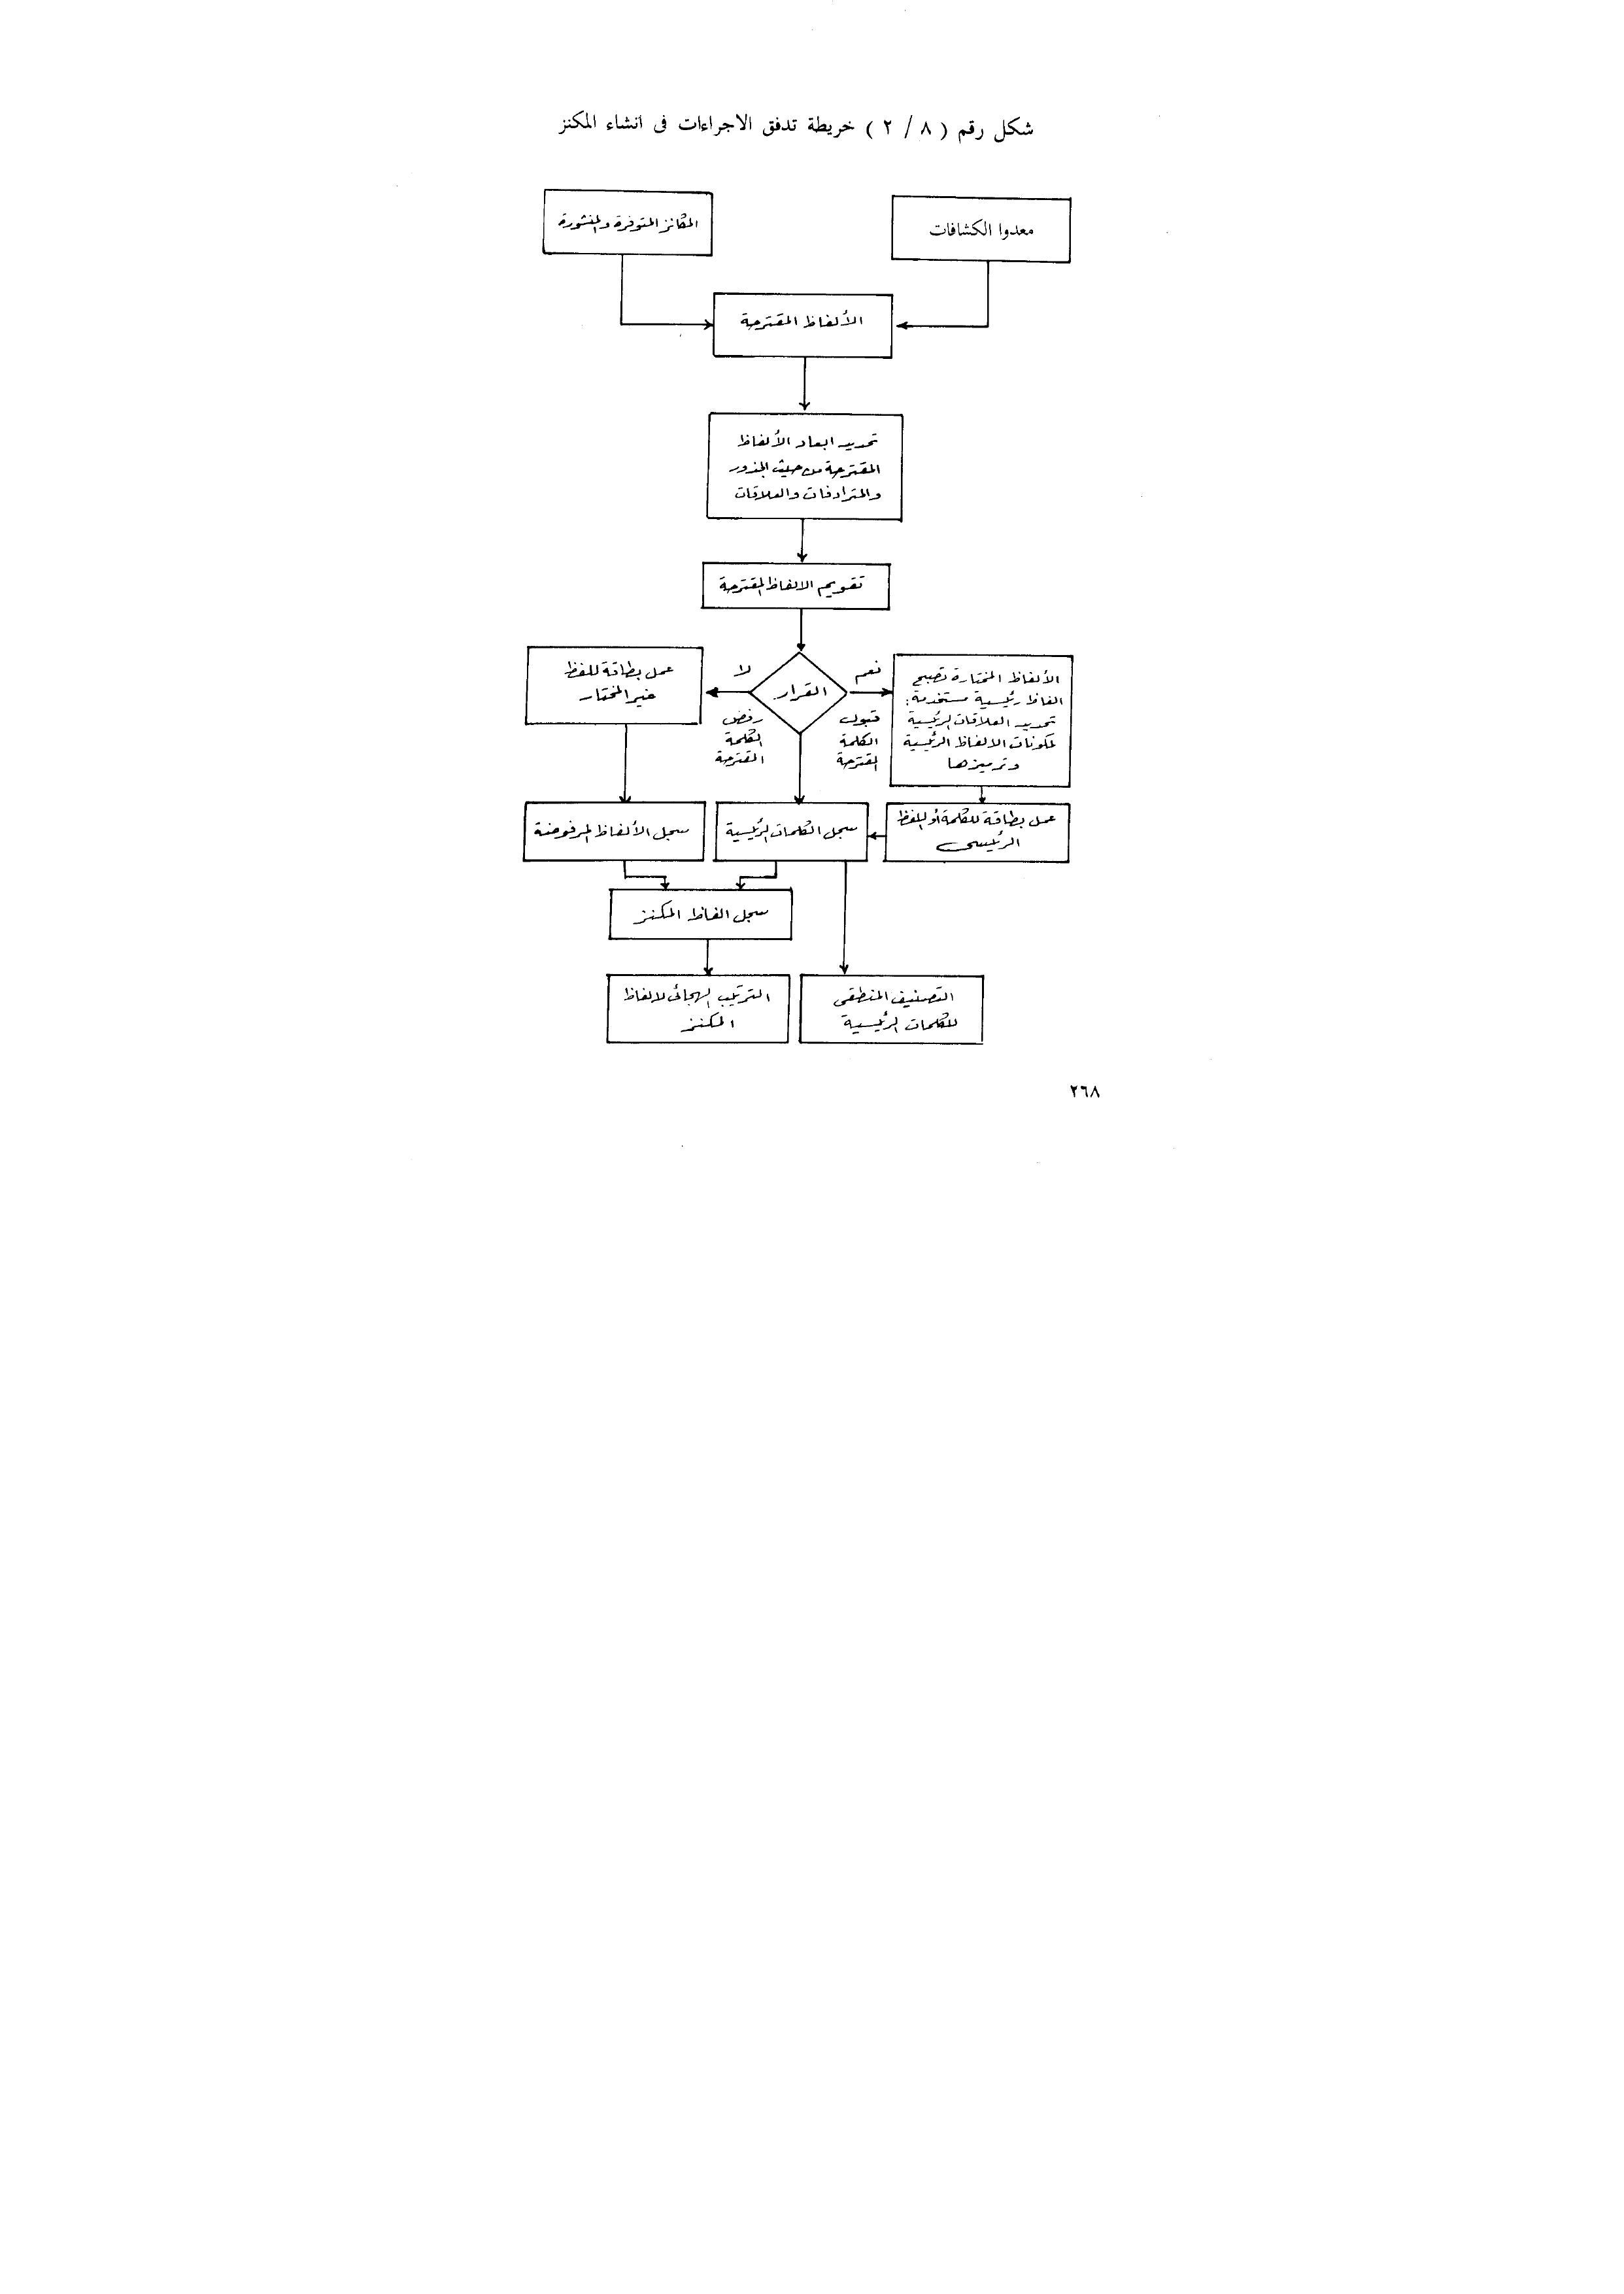 شكل رقم ( ٨ / ٢ ) خريطة تدفق الاجراءات فى انشاء المكنز
معدوا الكشافات
المكانز المتوفرة والمنشورة
الألفاظ المقترحة
تحديد ابعاد الألفاظ
المقترحة من حيث الجذور
والمترادفات والعلاقات
تقويم الالفاظ المقترحة
القرار
نعم
قبول
الكلمة
المقترحة
لا
رفض
الكلمة
المقترحة
الألفاظ المختارة تصبح
الفاظ رئيسية مستخدمة :
تحديد العلاقات الرئيسية
لمكونات الالفاظ الرئيسية
وترميزها
عمل بطاقة للفظ
غير المختار
عمل بطاقة للكلمة أو اللفظ
الرئيسى
سجل الكلمات الرئيسية
سجل الألفاظ المرفوضة
سجل الفاظ المكنز
التصنيف المنطقى
للكلمات الرئيسية
الترتيب الهجائى لالفاظ
المكنز
٢٦٨